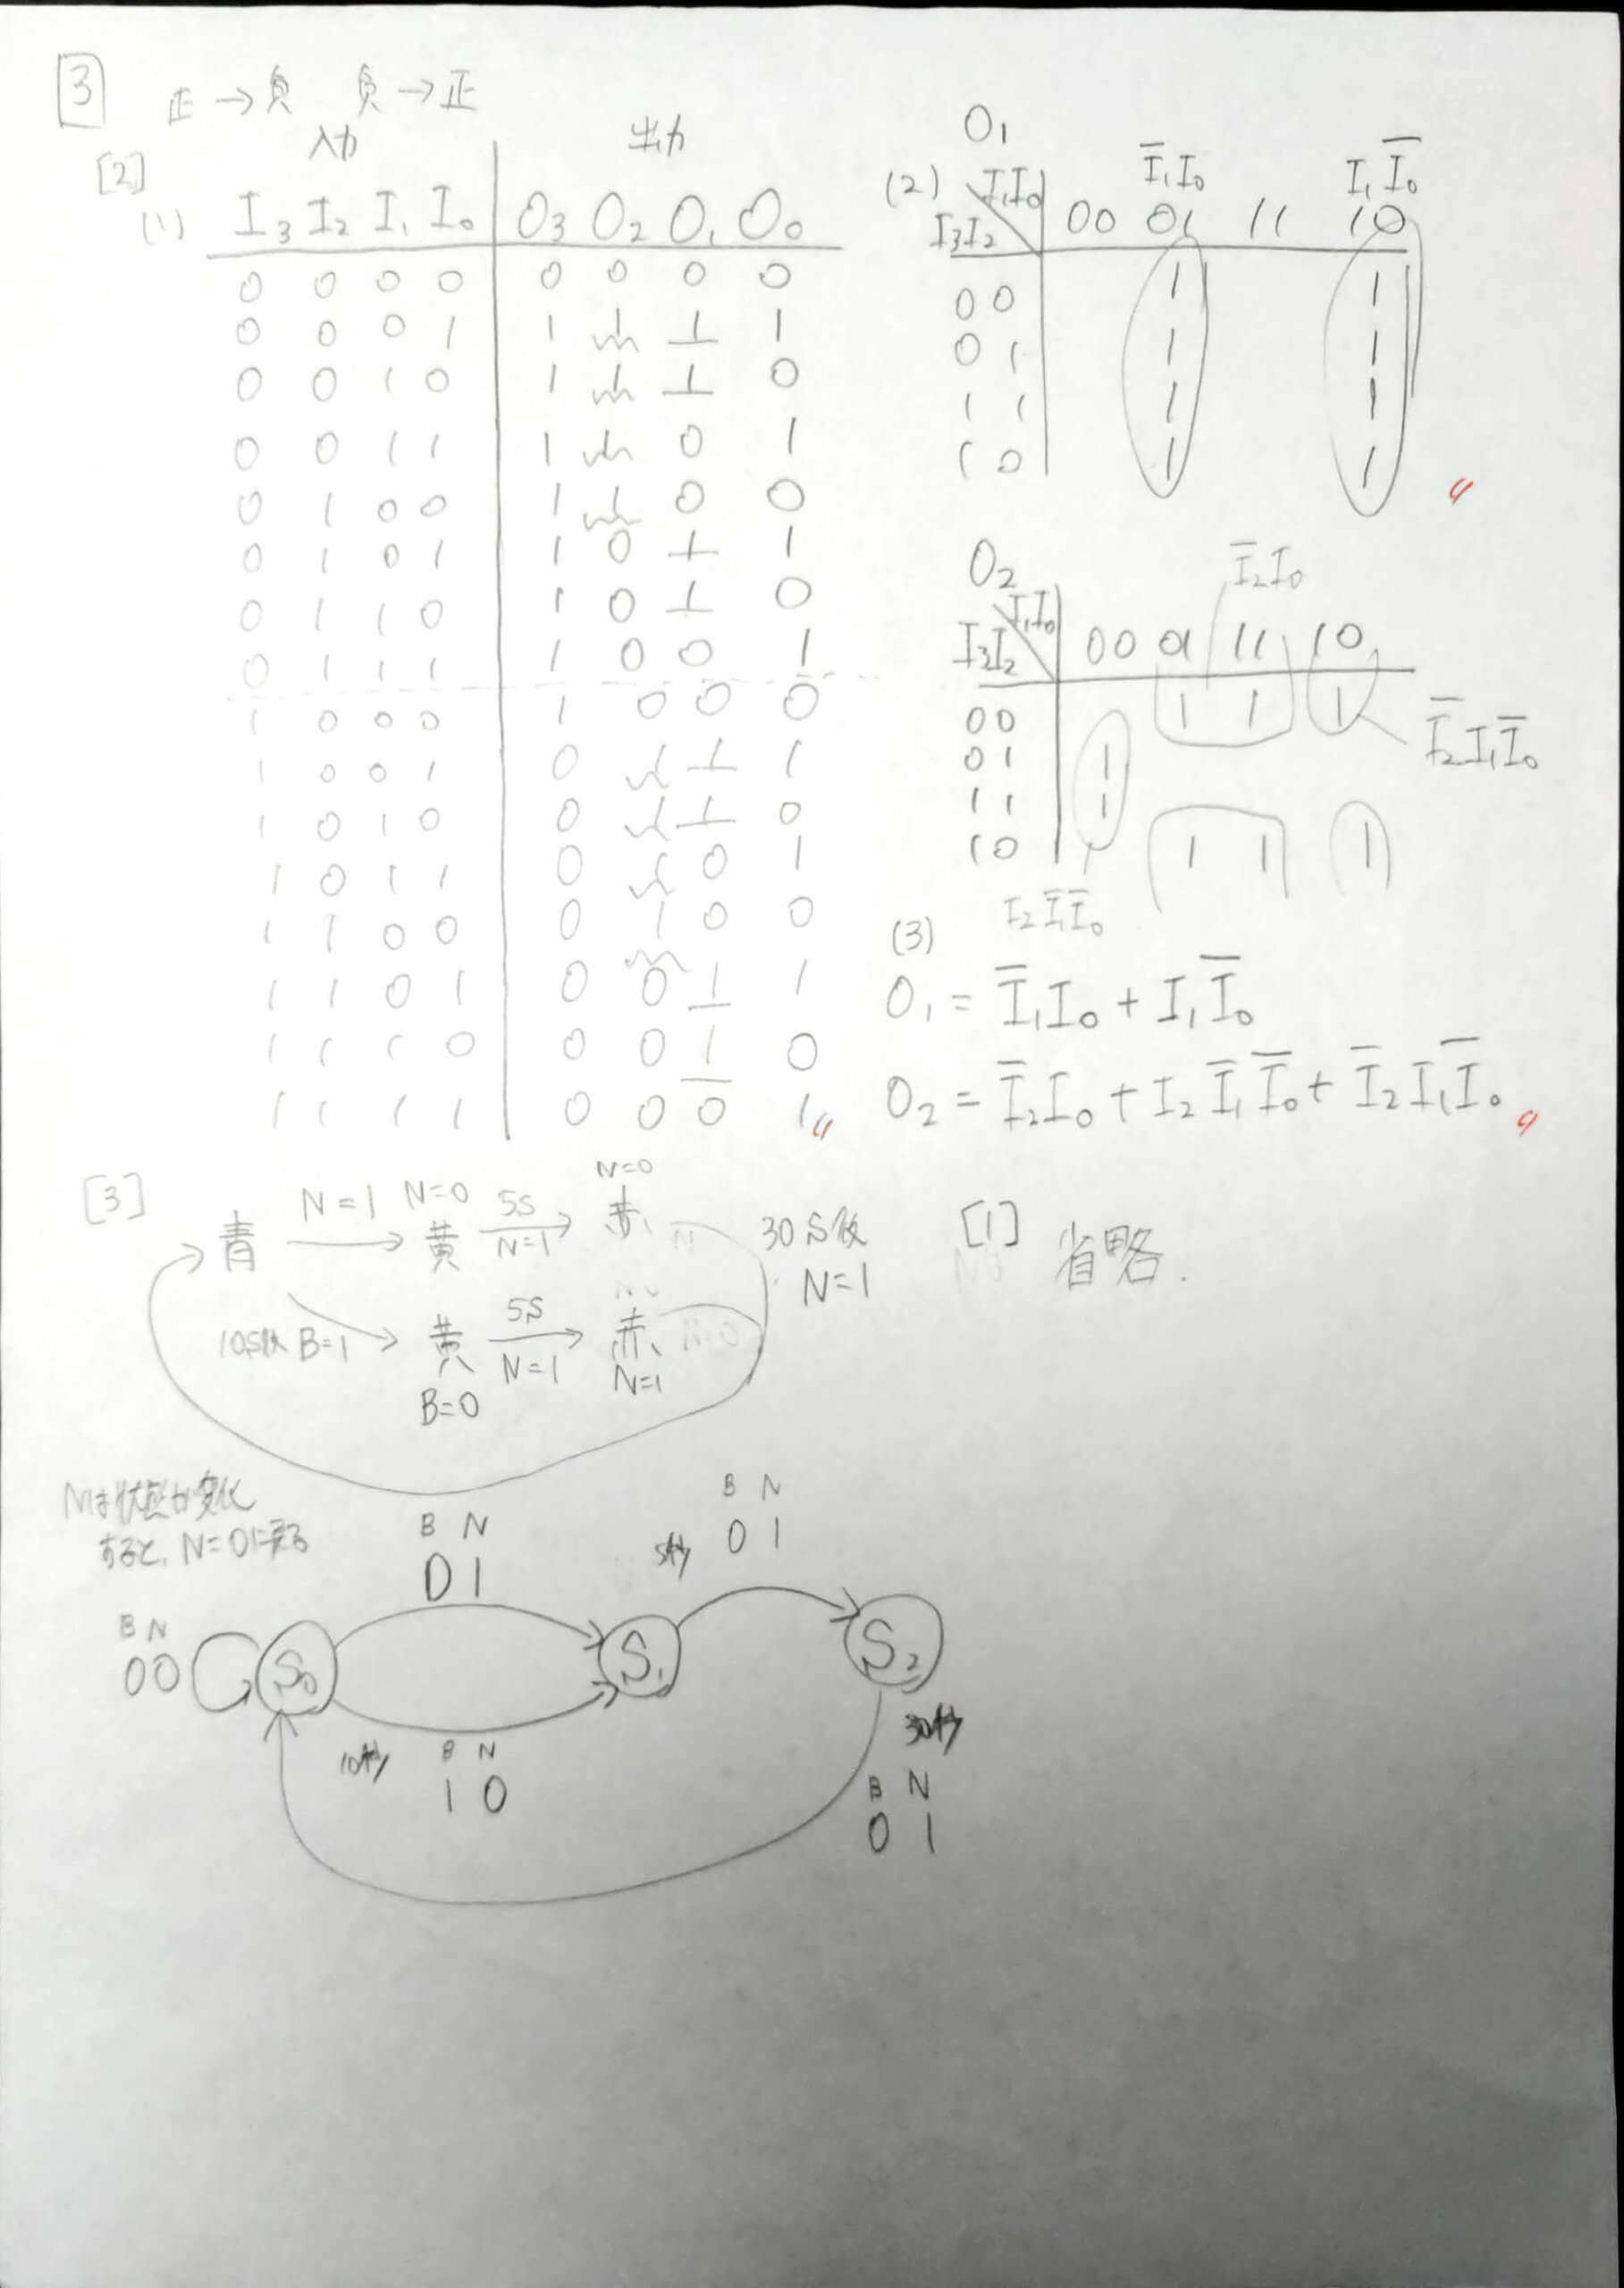 3 正→負 負→正
[2] 入力 出力
(1) I₃ I₂ I₁ I₀ O₃ O₂ O₁ O₀
0 0 0 0 0 0 0 0
0 0 0 1 1 1 1 1
0 0 1 0 1 1 1 0
0 0 1 1 1 1 0 1
0 1 0 0 1 1 0 0
0 1 0 1 1 0 1 1
0 1 1 0 1 0 1 0
0 1 1 1 1 0 0 1
1 0 0 0 1 0 0 0
1 0 0 1 0 1 1 1
1 0 1 0 0 1 1 0
1 0 1 1 0 1 0 1
1 1 0 0 0 1 0 0
1 1 0 1 0 0 1 1
1 1 1 0 0 0 1 0
1 1 1 1 0 0 0 1
O₁
I̅₁I₀ I₁I̅₀
(2) I₁I₀ 00 01 11 10
I₃I₂
00 1 1
01 1 1
11 1 1
10 1 1
O₂ I̅₂I₀
I₁I₀ 00 01 11 10
I₃I₂
00 1 1 1
I̅₂I₁I̅₀
01 1
11 1
10 1 1 1
I₂I̅₁I̅₀
(3)
O₁ = I̅₁I₀ + I₁I̅₀
O₂ = I̅₂I₀ + I₂I̅₁I̅₀ + I̅₂I₁I̅₀
[3] 青 N=1 → N=0 黄 5S N=1 → N=0 赤
30S後 N=1
10S後 B=1 → 黄 B=0 5S N=1 → 赤 N=1
[1] 省略.
Nは状態が変化
すると、N=0に戻る
B N
0 1
5秒 B N
0 1
B N
00
S₀ S₁ S₂
10秒 B N
1 0
30秒
B N
0 1